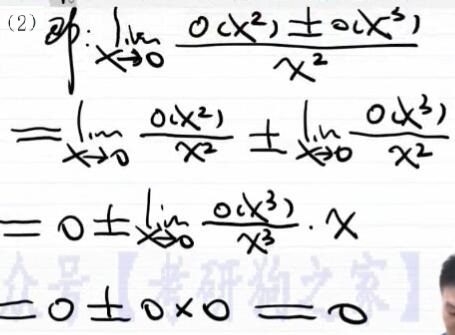 (2) 即: lim x→0 o(x²) ± o(x³) / x²
= lim x→0 o(x²)/x² ± lim x→0 o(x³)/x²
= 0 ± lim x→0 o(x³)/x³ · x
= 0 ± 0 × 0 = 0
众号【考研狗之家】